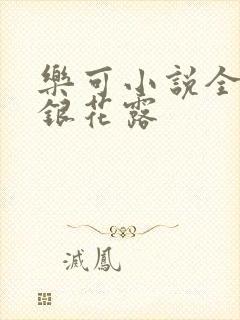 樂可小說全
銀花露
滅鳳